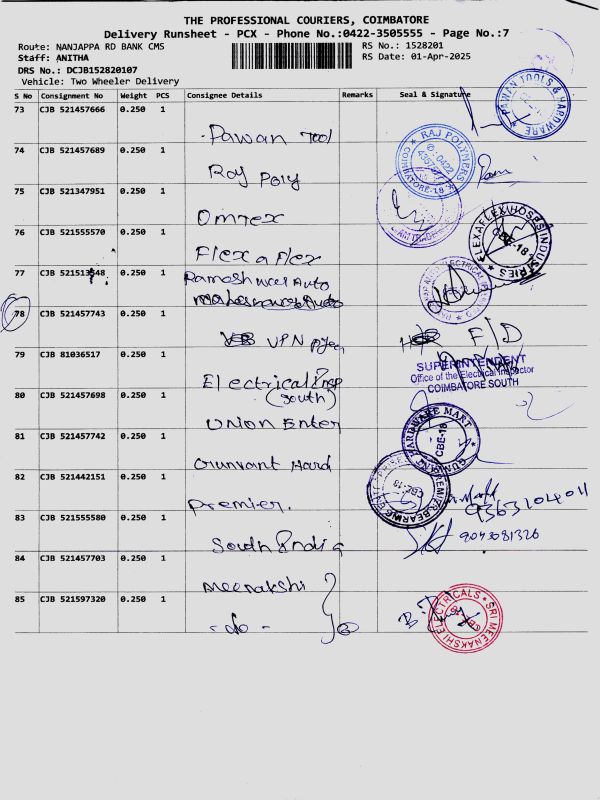 THE PROFESSIONAL COURIERS, COIMBATORE
Delivery Runsheet - PCX - Phone No.:0422-3505555 - Page No.:7
Route: NANJAPPA RD BANK CMS RS No.: 1528201
Staff: ANITHA RS Date: 01-Apr-2025
DRS No.: DCJB152820107
Vehicle: Two Wheeler Delivery
S No Consignment No Weight PCS Consignee Details Remarks Seal & Signature
73 CJB 521457666 0.250 1
Pawan Tool
PAWAN TOOLS & HARDWARE
74 CJB 521457689 0.250 1
RAJ POLYMERS
COIMBATORE-18
Raj Poly
75 CJB 521347951 0.250 1
Omtex
76 CJB 521555570 0.250 1
Flex a Flex
CBE-18
77 CJB 521513548 0.250 1
Rameshwar Auto
78 CJB 521457743 0.250 1
VPN
F/D
79 CJB 81036517 0.250 1
SUPERINTENDENT
Office of the Electrical Inspector
COIMBATORE SOUTH
Electrical Insp
(South)
80 CJB 521457698 0.250 1
Union Enter
81 CJB 521457742 0.250 1
HARDWARE MART
CBE-18
Gunvant Hard
82 CJB 521442151 0.250 1
PREMIER BEARING
CBE-18
Premier.
93631024011
83 CJB 521555580 0.250 1
South India
9043081326
84 CJB 521457703 0.250 1
Meenakshi
85 CJB 521597320 0.250 1
-do- 2
SRI MEENAKSHI ELECTRICALS